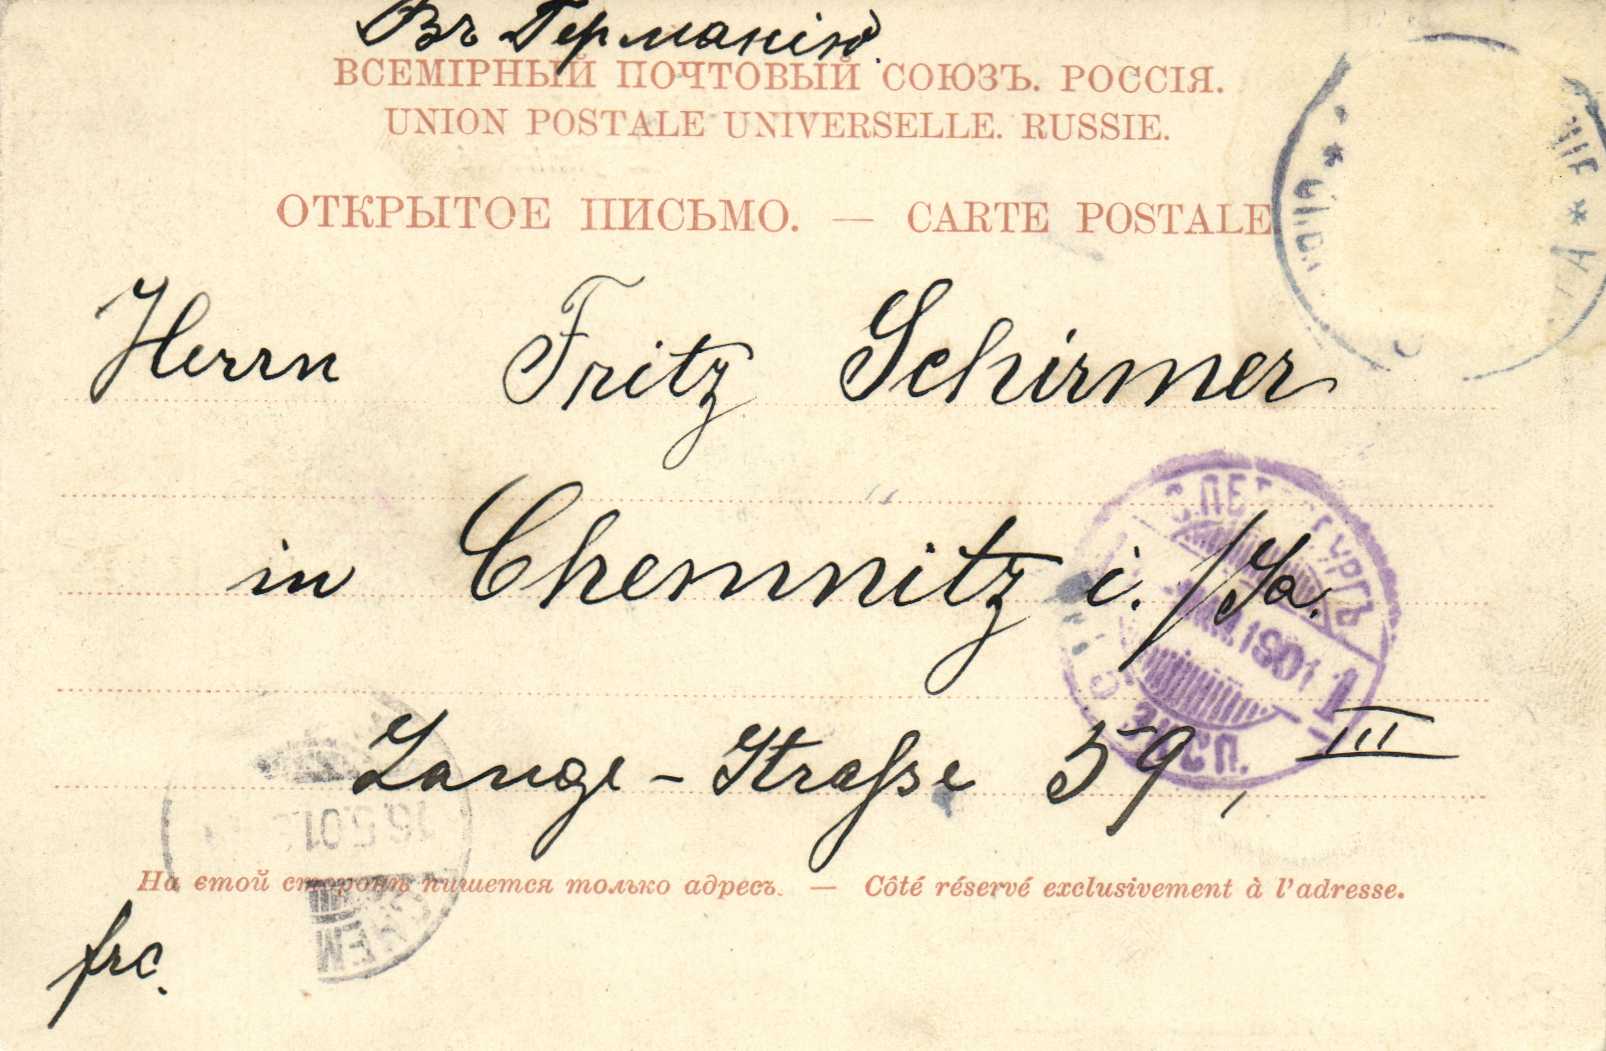 Въ Германію
ВСЕМІРНЫЙ ПОЧТОВЫЙ СОЮЗЪ. РОССІЯ.
UNION POSTALE UNIVERSELLE. RUSSIE.
ОТКРЫТОЕ ПИСЬМО. — CARTE POSTALE
Herrn Fritz Schirmer
in Chemnitz i./Sa.
Lange-Strasse 59, III
1901 1
16.5.01
На етой сторонѣ пишется только адресъ. — Côté réservé exclusivement à l'adresse.
frc.